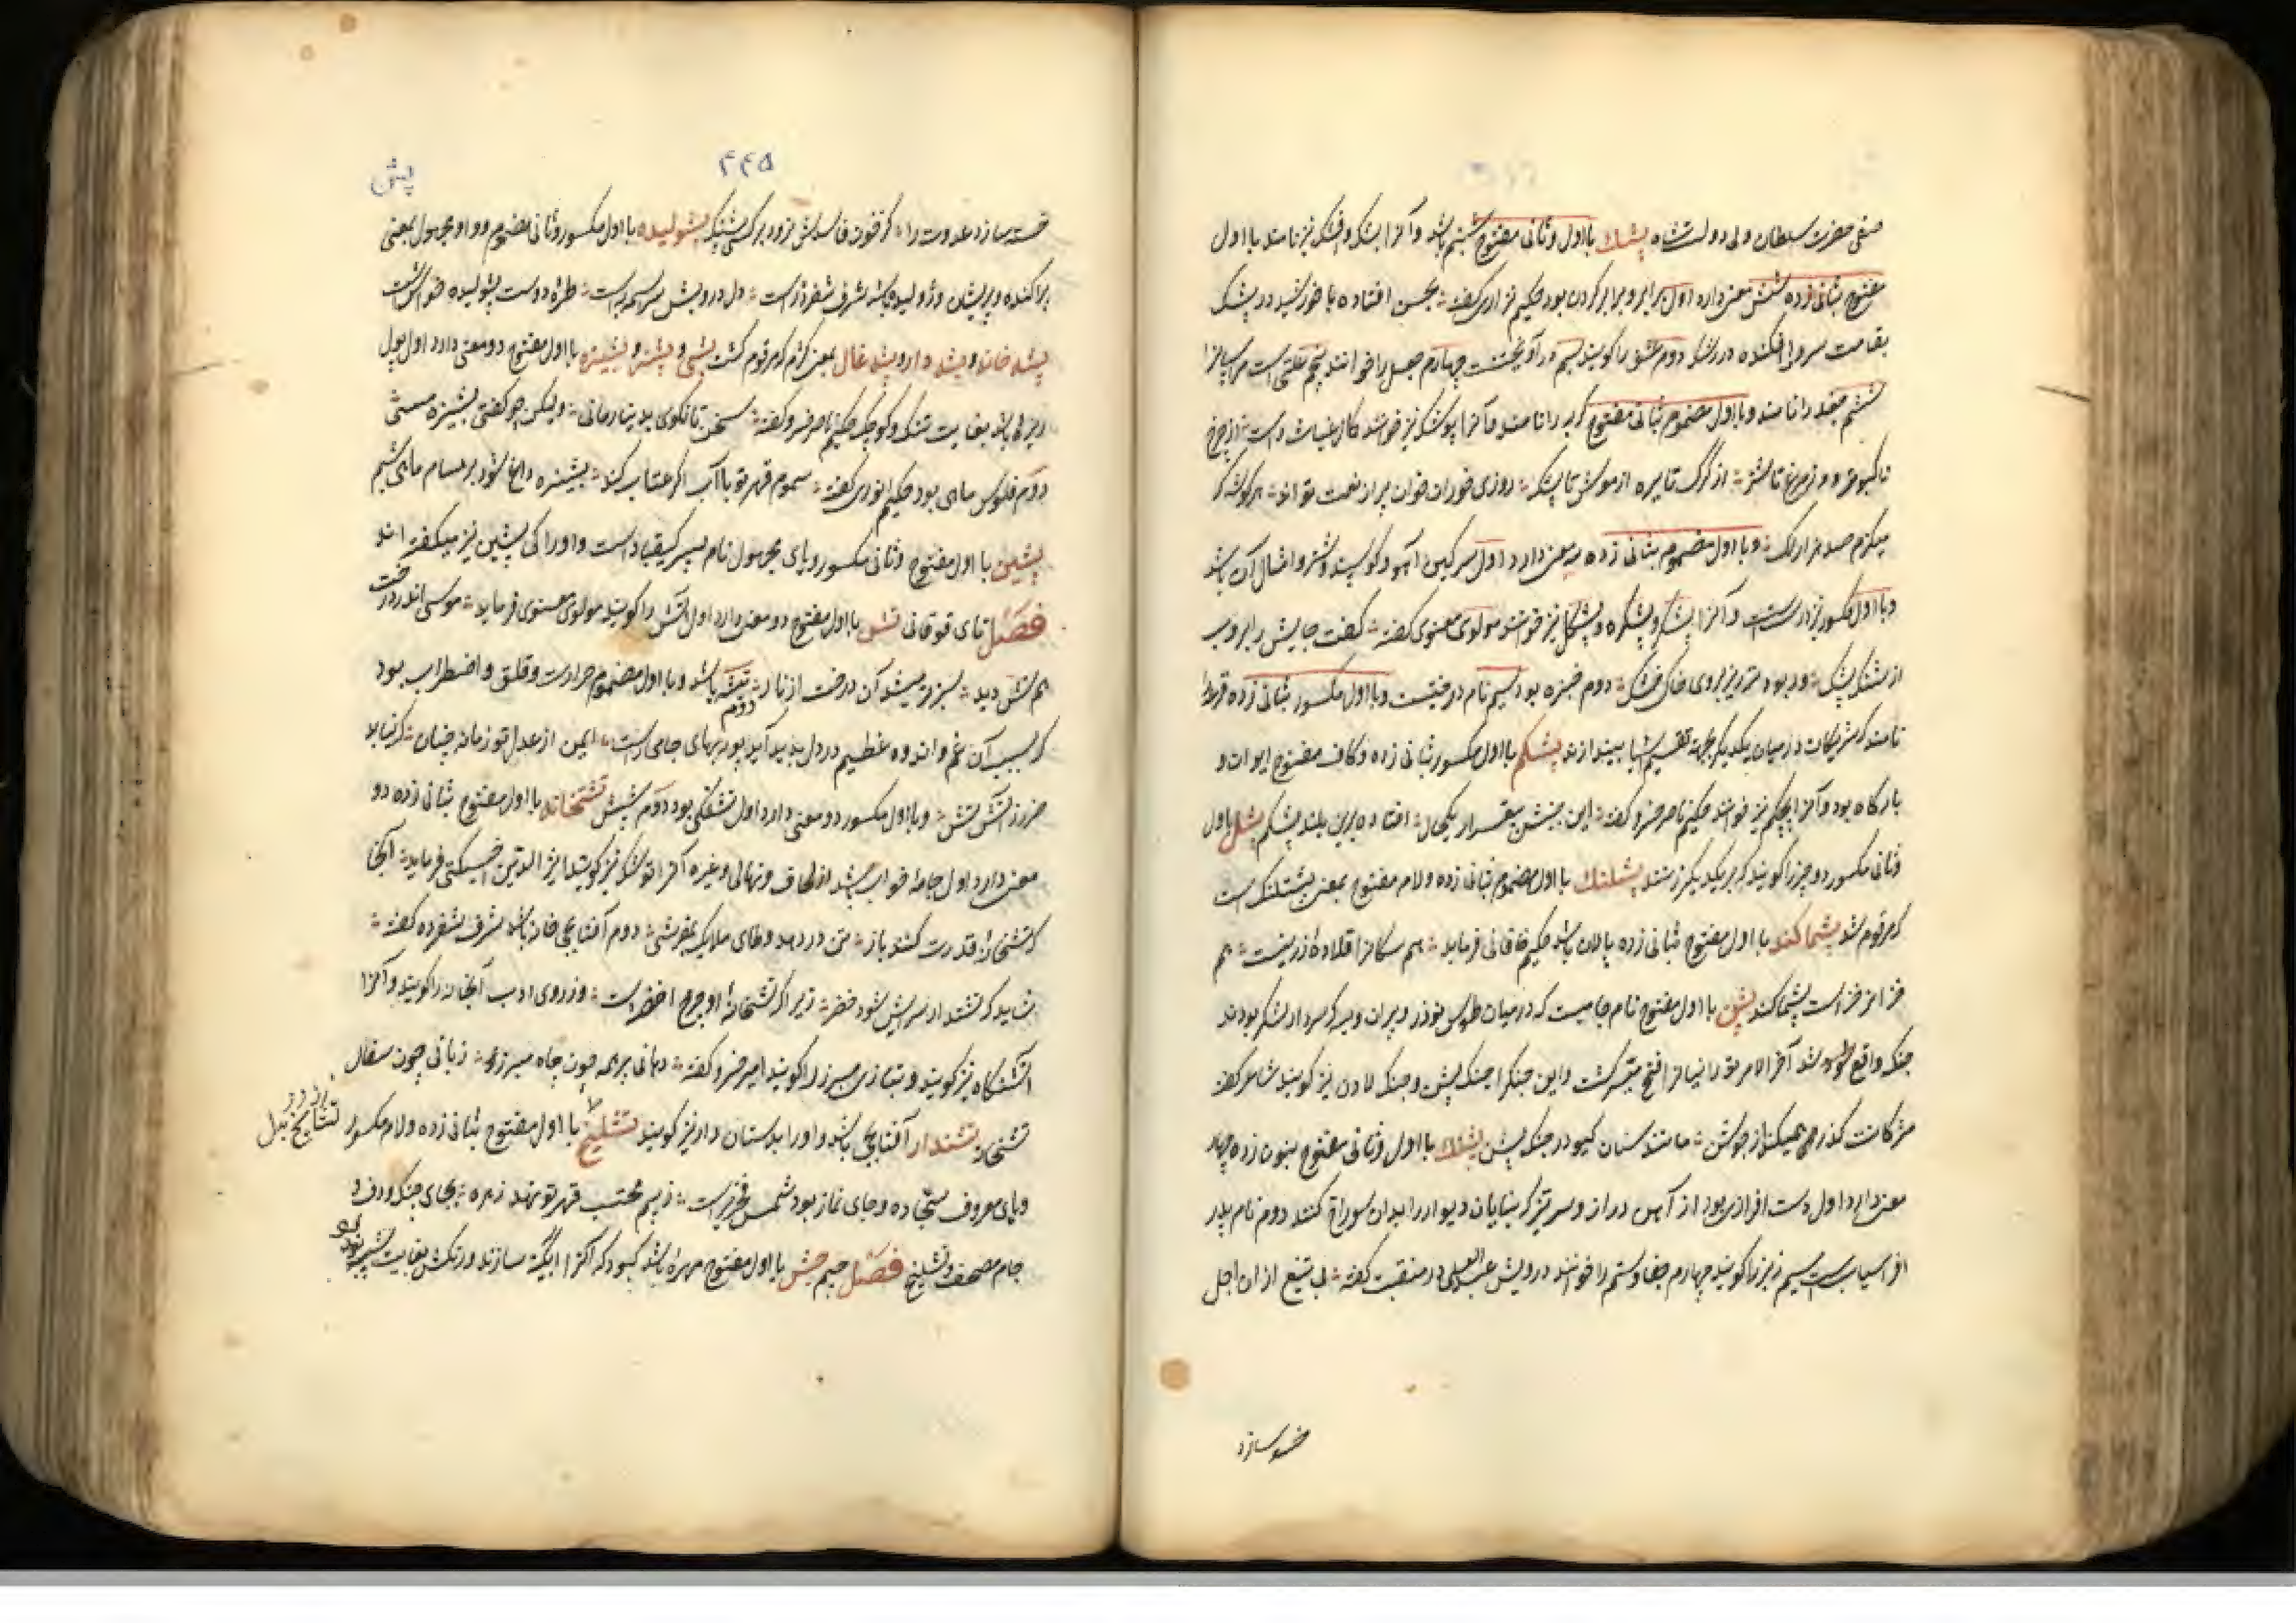 صفی حضرت سلطان ولی دولتشاه پشک با اول و ثانی مفتوح شبنم باشد و آنرا بشک و افشک نیز نامند با اول
مفتوح بثانی زده شش معنی دارد اول برابر و برابر کردن بود حکیم نزاری گفته بحسن افتاده با خورشید در پشک
بقامت سرو را افکنده در رشک دوم عشق را گویند سیم در آویختنست چهارم جعل را خوانند پنجم علتی است مر
ششم جغد را نامند و با اول مضموم بثانی مفتوح گربه را نامند و آنرا پوشک نیز خوانند کمال غیاث راست
تا کبوتر از گرگ تا بره از موش تا پشک روزی خوران خوان پر از نعمت تواند هر گوشه
میکزم صد هزار لک و با اول مضموم بثانی زده سه معنی دارد اول سرگین آهو و گوسپند و شتر و امثال آن باشد
و با اول مکسور نیز درست است و آنرا پشکر و پشکره و پشکل نیز خوانند مولوی معنوی گفته گفت جایش را بروب
از سنگ پشک ور بود تر ریز بروی خاک خشک دوم خنبره بود سیم نام درختیست و با اول مکسور بثانی زده قرعه را
نامند که شریکان در میان یکدیگر بجهة تقسیم اشیا بیندازند پشکم با اول مکسور بثانی زده و کاف مفتوح ایوان و
بارگاه بود و آنرا بچکم نیز خوانند حکیم ناصر خسرو گفته این بیقرار یکحال افتاده برین بلند پشکم پشل با اول
و ثانی مکسور دو چیز را گویند که بر یکدیگر زنند پشلنک با اول مضموم بثانی زده و لام مفتوح بمعنی پشتلنک است
که مرقوم شد پشماکند با اول مفتوح بثانی زده پالان باشد حکیم خاقانی فرماید هم سگانرا قلاده زرینست هم
خرانرا خز است پشماکند پشن با اول مفتوح نام جائیست که در میان طوس نوذر و پیران ویسه که سردار لشکر بودند
جنک واقع شد آخر الامر تورانیانرا فتح میسر گشت و این جنگرا جنک پشن و جنک لادن نیز گویند شاعر گفته
مژگانت گذر همیکند از جوشن مانند سنان گیو در جنک پشن پشنک با اول و ثانی مفتوح بنون زده چهار
معنی دارد اول دست افزاری بود از آهن دراز و سر تیز که بنایان دیوار را بدان سوراخ کنند دوم نام پدر
افراسیاب است سیم را گویند چهارم جفا و ستم را خوانند درویش در منقبت گفته لب تیغ از ان اجل
خسته سازد
۴۴۵
پش
خسته سازد عدوت را که پشنک پشولیده با اول مکسور و ثانی مضموم و واو مجهول بمعنی
پراکنده و پریشان و ژولیده باشد شرف شفروه راست دل درویش سراسیمه است طره دوست پشولیده خوش است
پشه خانه و پشه دار و پشه غال بمعنی مرقوم گشت پشی و پشیز و پشیزه با اول مفتوح دو معنی دارد اول پول
ریزه باشد بغایت تنک و کوچک حکیم ناصر خسرو گفته سخن تا نگوئی بدینار مانی ولیکن چو گفتی پشیزه مسی
دوم فلوس ماهی بود حکیم انوری گفته سموم قهر تو با آب اگر عتاب کند پشیزه داغ شود بر مسام ماهی شیم
پشین با اول مفتوح و ثانی مکسور و یای مجهول نام پسر کیقباد است و او را کی پشین نیز میگفته اند
فصل تای فوقانی تش با اول مفتوح دو معنی دارد اول آتش را گویند مولوی معنوی فرماید موسی اندر درخت
هم تش دید سبزتر میشد آن درخت از نار دوم تیشه باشد و با اول مضموم حرارت و قلق و اضطراب بود
که بسبب آن غم و اندوه عظیم در دل پدید آید پور بهای جامی راست ایمن از عدل تو زمانه چنان که نیابد
ضرر ز آتش تش و با اول مکسور دو معنی دارد اول تشنگی بود دوم شپش تشتخانه با اول مفتوح بثانی زده دو
معنی دارد اول جامه خواب باشد از لحاف و نهالی و غیره آنرا توشک نیز گویند اثیر الدین اخسیکتی فرماید آنجا
که تشتخانه قدرت کنند باز تن در دهد وطای ملایک بمفرشی دوم آفتابچی خانه باشد شرف شفروه گفته
شاید که تشتدار سرایش شود خضر زیرا که تشتخانه او چرخ اخضر است و ز روی ادب آبخانه را گویند و آنرا
آتشتگاه نیز گویند و بتازی مبرز را گویند امیر خسرو گفته دهانی پر همه چون چاه مبرز زبانی چون سفال
تشتخانه تشتدار آفتابچی باشد و او را بدستان دار نیز گویند تشلیخ با اول مفتوح بثانی زده و لام مکسور
و یای معروف سجاده و جای نماز بود شمس فخری راست ز بیم محتسب قهر تو نهد زهره بجای چنک و دف و
جام مصحف و تشلیخ فصل جیم جش با اول مفتوح مهره باشد کبود که آنرا از آبگینه سازند و رنگش بغایت شبیه